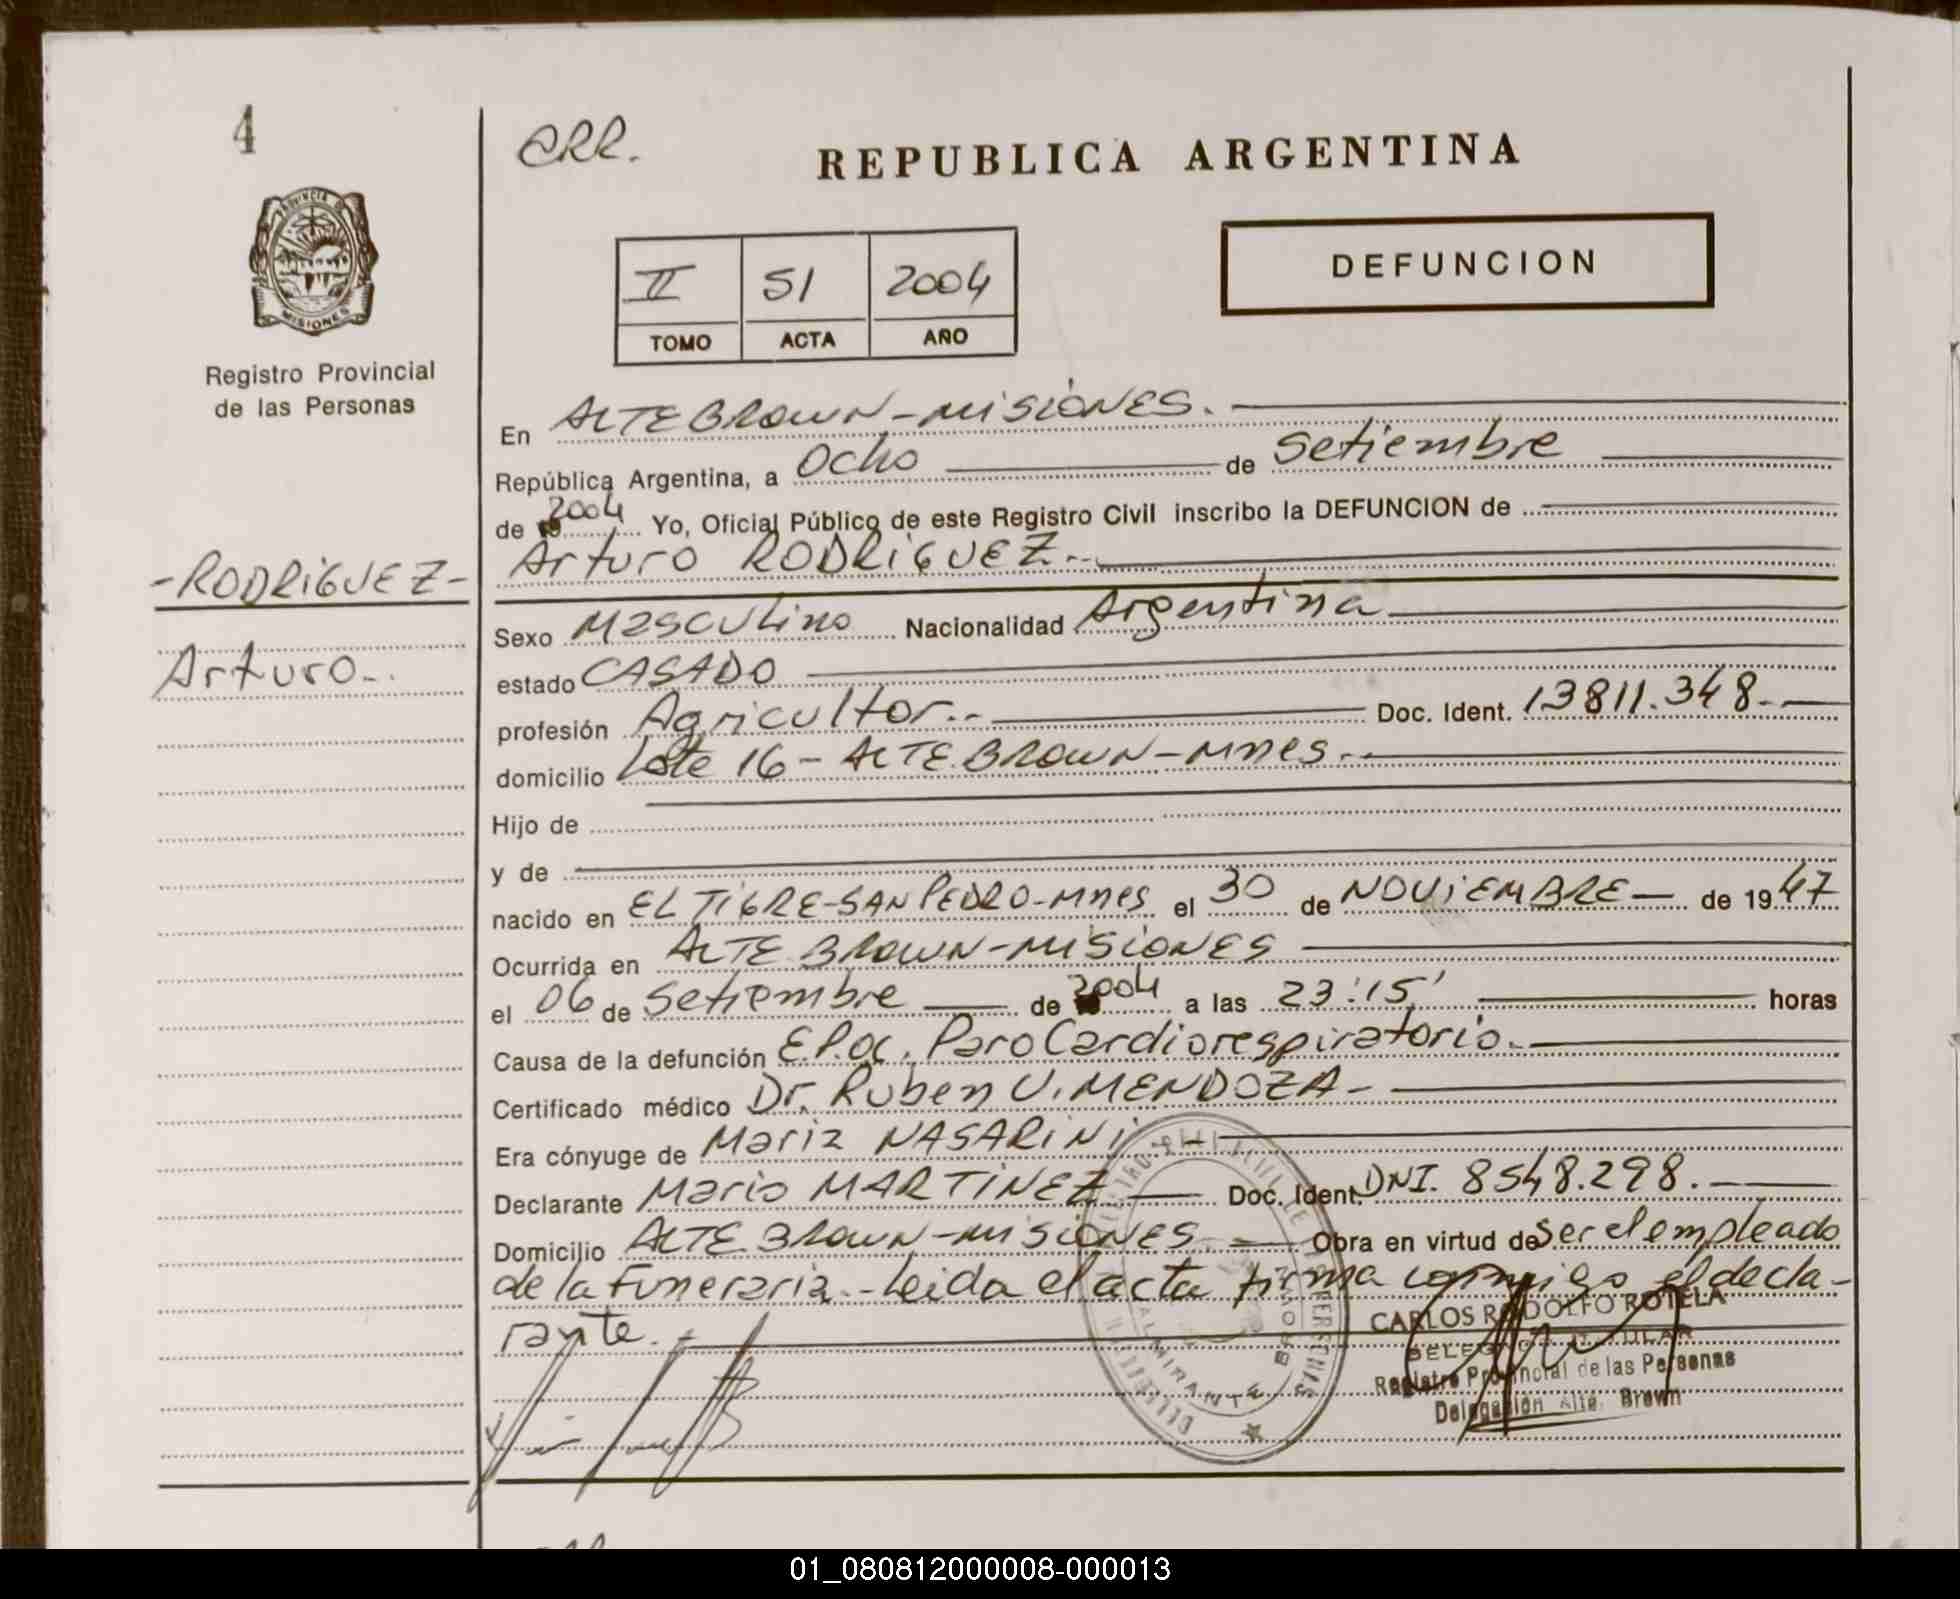 4
ARR.
REPUBLICA ARGENTINA
PROVINCIA DE
MISIONES
Registro Provincial
de las Personas
II 51 2004
TOMO ACTA AÑO
DEFUNCION
En ALTE BROWN-MISIONES.
República Argentina, a Ocho de Setiembre
de 2004 Yo, Oficial Público de este Registro Civil inscribo la DEFUNCION de
Arturo RODRIGUEZ.-
-RODRIGUEZ-
Arturo-.
Sexo Masculino Nacionalidad Argentina
estado CASADO
profesión Agricultor.- Doc. Ident. 13811.348.-
domicilio Lote 16 - ALTE.BROWN-Mnes.-
Hijo de
y de
nacido en EL TIGRE-SAN PEDRO-Mnes el 30 de NOVIEMBRE de 1947
Ocurrida en ALTE BROWN-MISIONES
el 06 de Setiembre de 2004 a las 23:15' horas
Causa de la defunción E.P.OC. Paro Cardiorespiratorio.-
Certificado médico Dr. Ruben V. MENDOZA-
Era cónyuge de Maria NASARINI
Declarante Mario MARTINEZ Doc. Ident. DNI. 8548.298.
Domicilio ALTE BROWN-MISIONES Obra en virtud de Ser el empleado
de la Funeraria.- Leida el acta firma conmigo el decla-
rante.-
CARLOS RODOLFO ROTELA
Registro Provincial de las Personas
Delegación Alte. Brown
ALMIRANTE BROWN
01_080812000008-000013